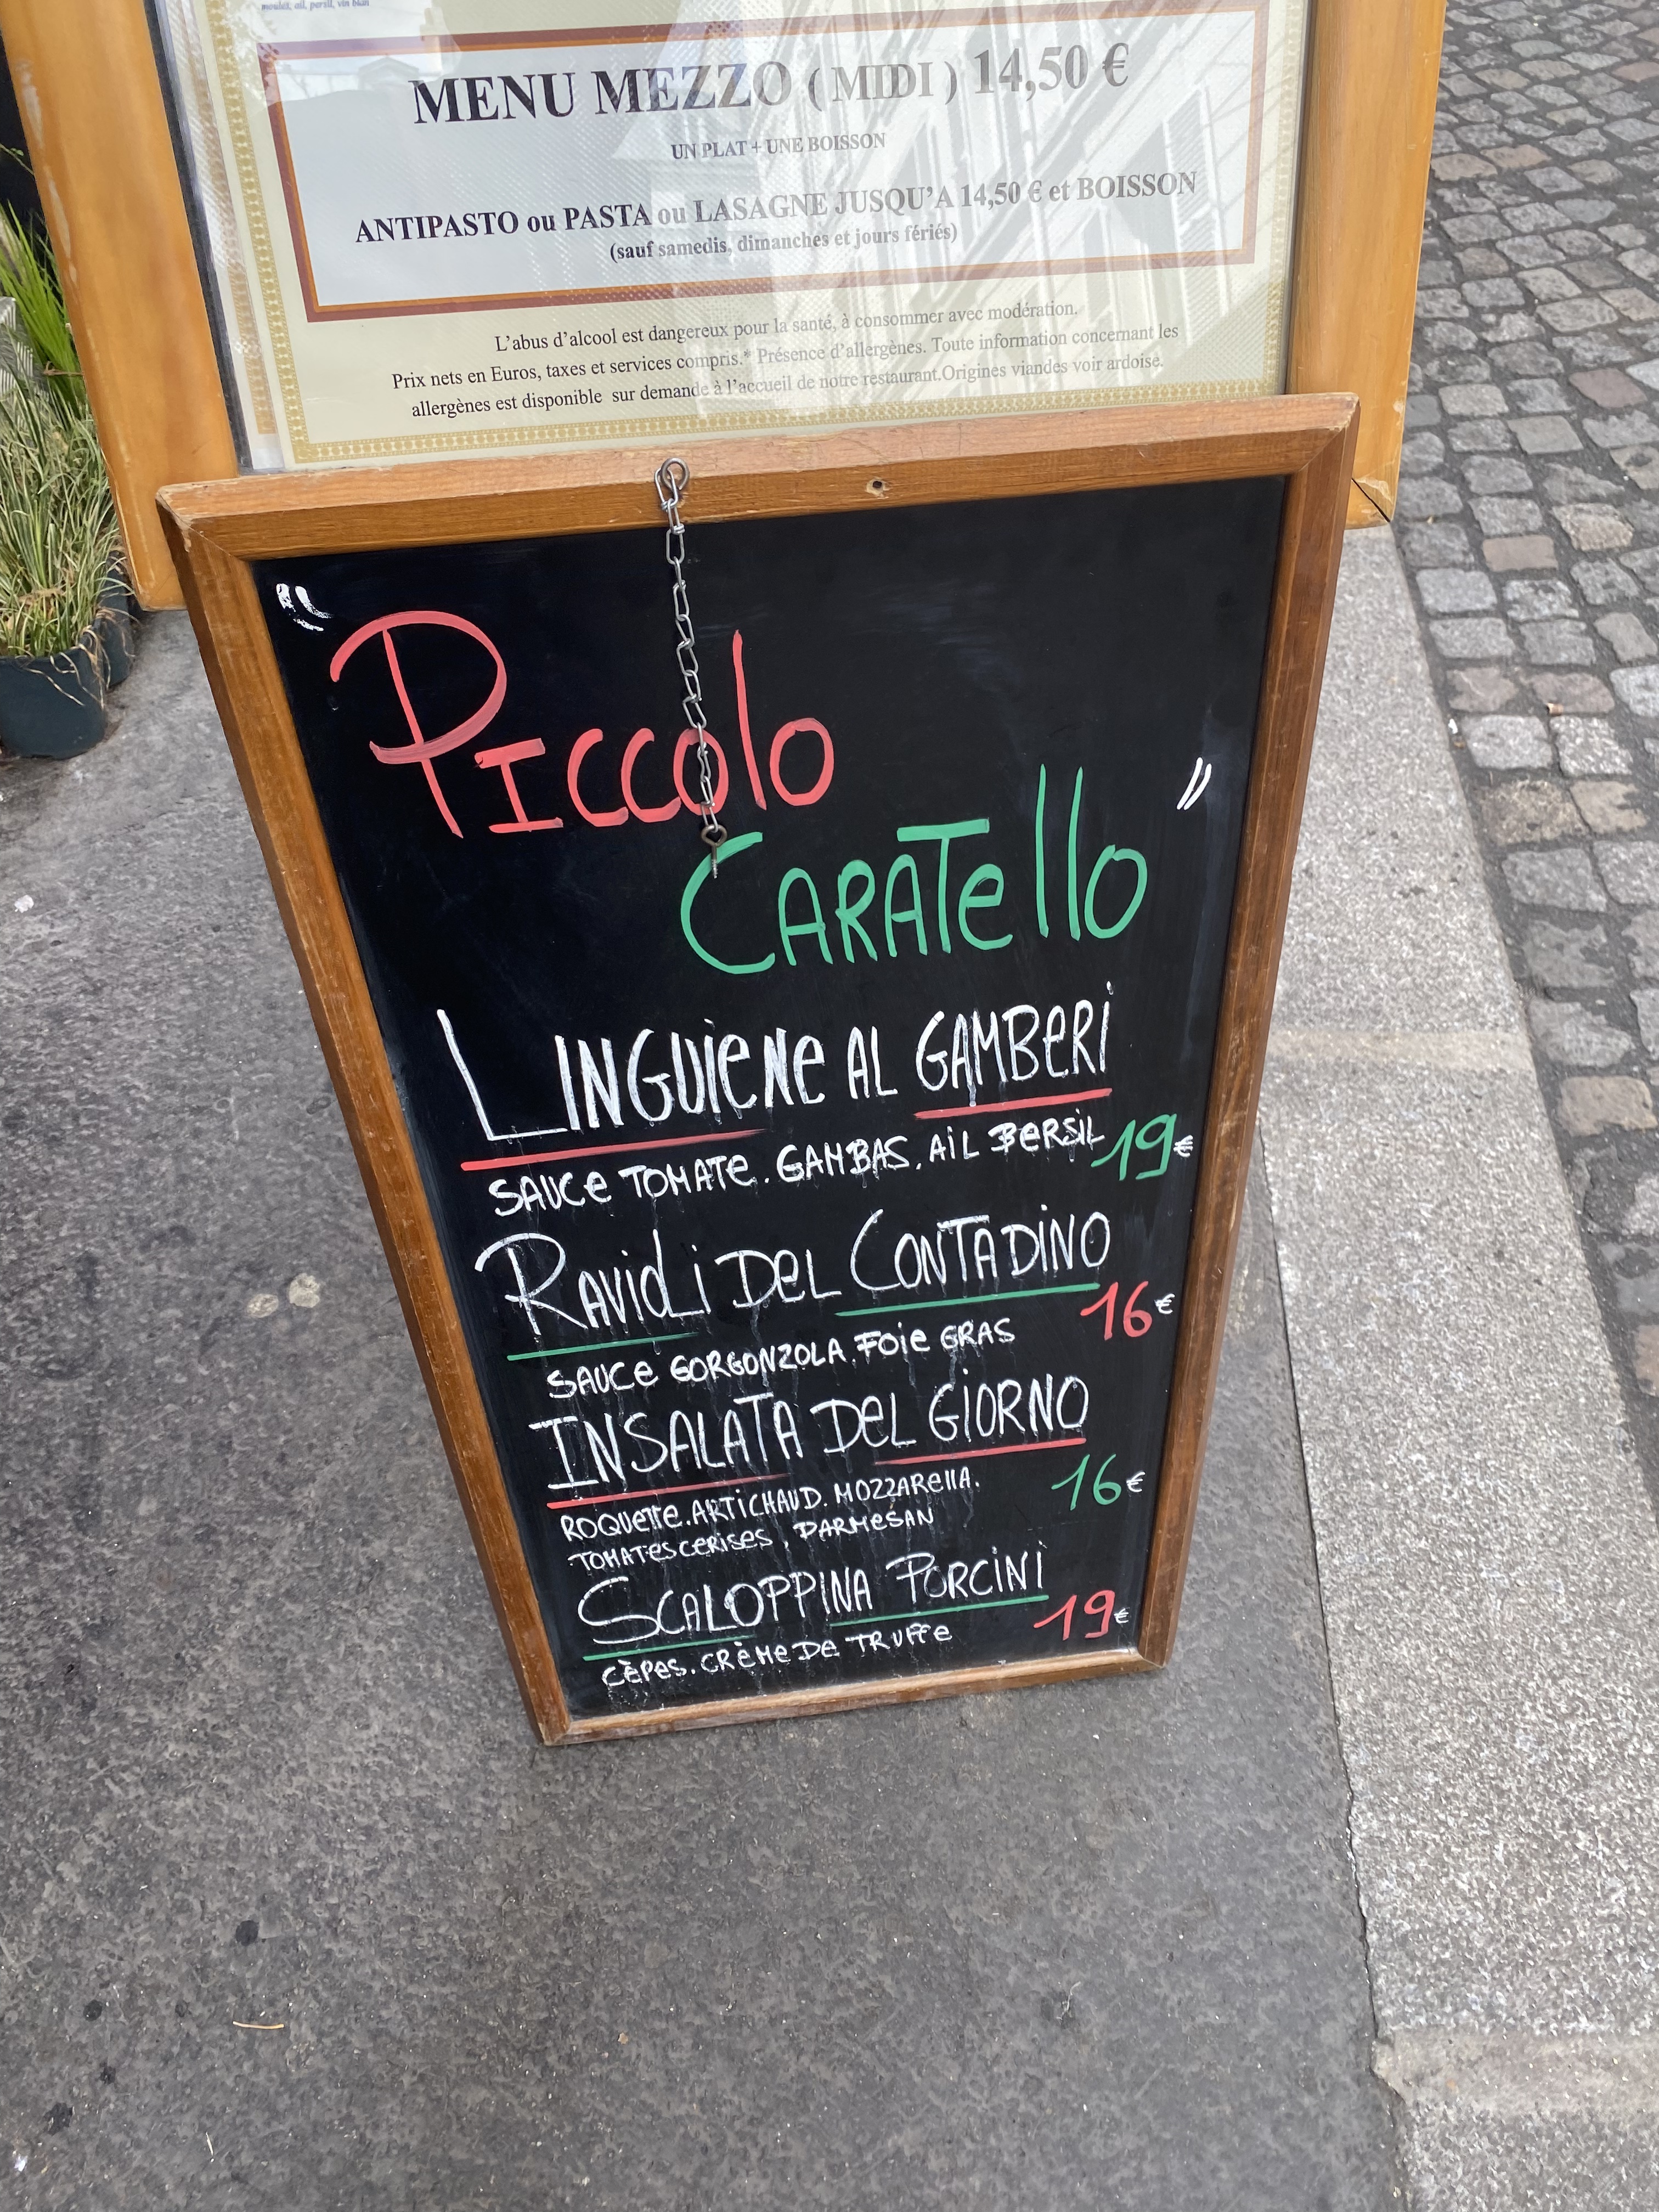 moules, ail, persil, vin blan
MENU MEZZO ( MIDI ) 14,50 €
UN PLAT + UNE BOISSON
ANTIPASTO ou PASTA ou LASAGNE JUSQU'A 14,50 € et BOISSON
(sauf samedis, dimanches et jours fériés)
L'abus d'alcool est dangereux pour la santé, à consommer avec modération.
Prix nets en Euros, taxes et services compris.* Présence d'allergènes. Toute information concernant les
allergènes est disponible sur demande à l'accueil de notre restaurant.Origines viandes voir ardoise.
" Piccolo
CARATello "
LINGUIeNe AL GAMBeRi
SAUCe TOMATe. GAMBAS. AiL PeRSiL 19€
RAVioLi DeL CONTADiNO
SAUCe GORGONZOLA. FOie GRAS 16€
INSALATA DeL GiORNO
ROQUeTTe. ARTiCHAUD. MOZZARellA. 16€
TOMATes CeRiSes, PARMeSAN
SCALOPPiNA PORCiNi
CÈPeS. CRèMe De TRUFFe 19€